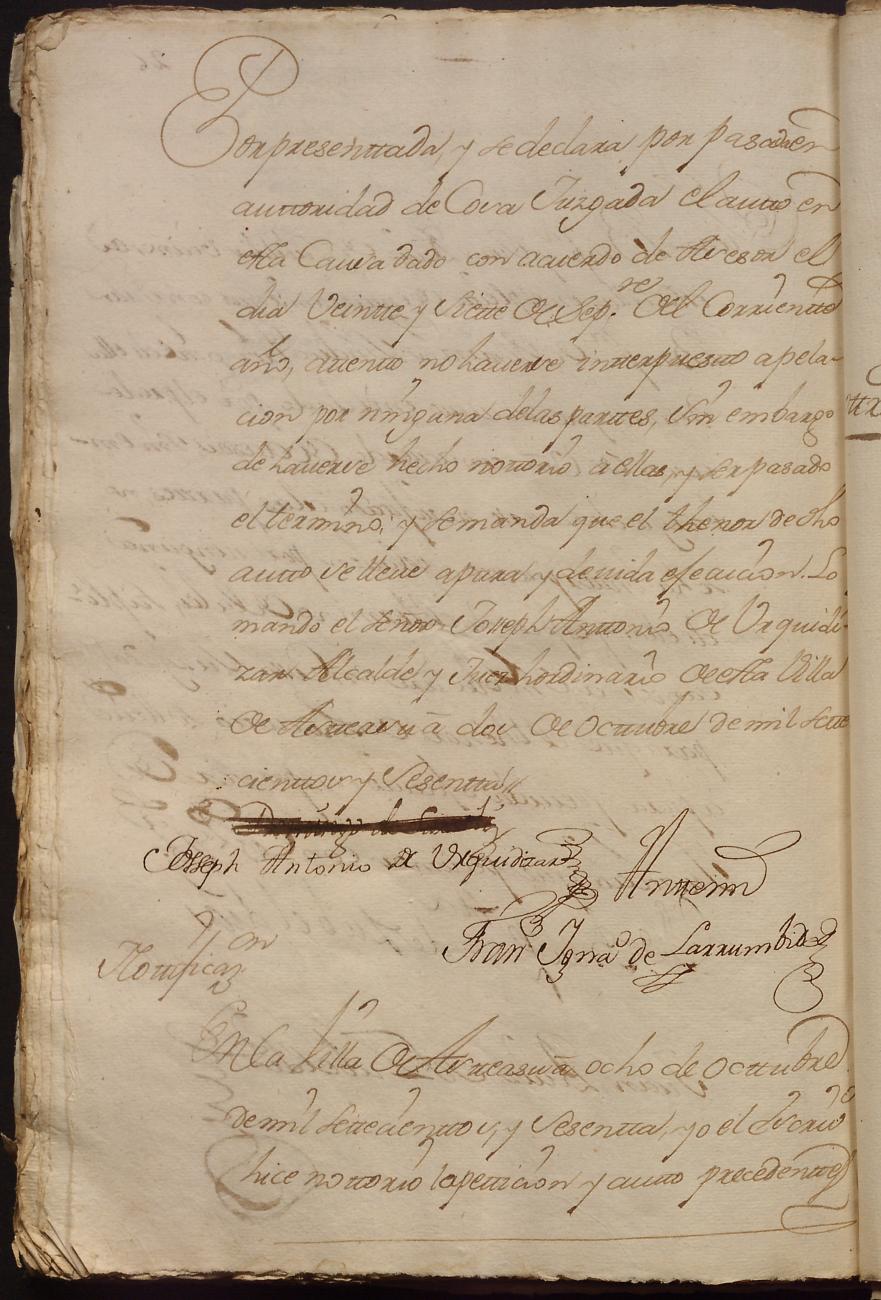 Por presenttada, y se declara por pasada en
auttoridad de Cosa Juzgada el autto en
esta Causa dado con acuerdo de Asesor el
dia Veintte y Siette de Sep.re del Corriente
año, attento no haverse intterpuestto apela-
cion por ninguna de las parttes, sin embargo
de haverse hecho nottorio a ellas, y ser pasado
el termino, y se manda que el thenor de dho
autto se lleve a pura y devida efecucion. Lo
mando el señor Joseph Anttonio de Urquidi-
zar Alcalde y Juez hordinario de esta Villa
de Asteasu a dos de Octtubre de mil sette
cienttos y Sesentta //
Joseph Antonio de Urquidizar Antte mi
Fran.co Ign.a de Larrumbide
Nottificaz.on
En la Villa de Asteasu a ocho de Octtubre
de mil settecienttos, y Sesentta, yo el Escrivo
hice nottorio la petticion y autto precedenttes